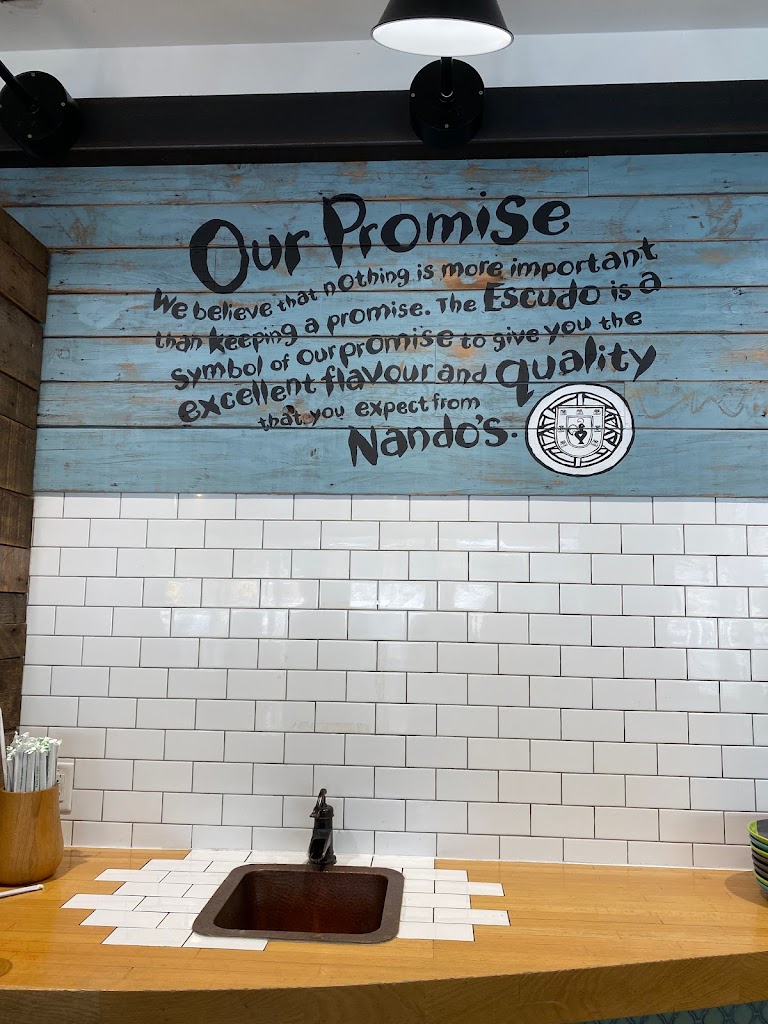 Our Promise
We believe that nothing is more important
than keeping a promise. The Escudo is a
symbol of our promise to give you the
excellent flavour and quality
that you expect from
Nando's.